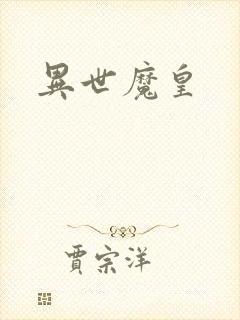 異世魔皇
賈宗洋